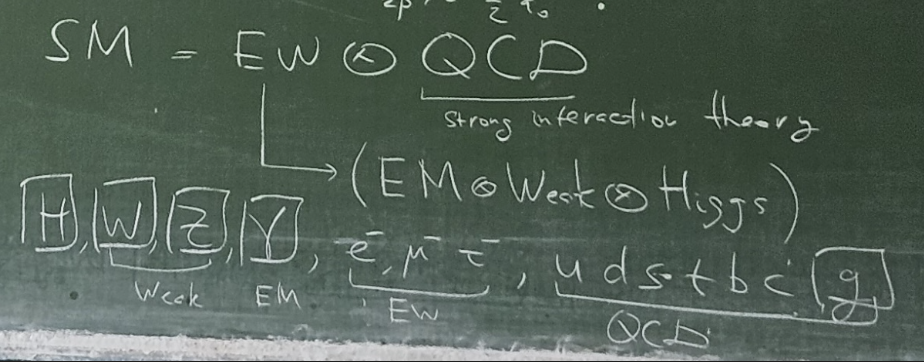 SM = EW ⊗ QCD
strong interaction theory
(EM ⊗ Weak ⊗ Higgs)
H, W, Z, γ, e⁻, μ⁻ τ⁻, u d s t b c g
Weak EM EW QCD